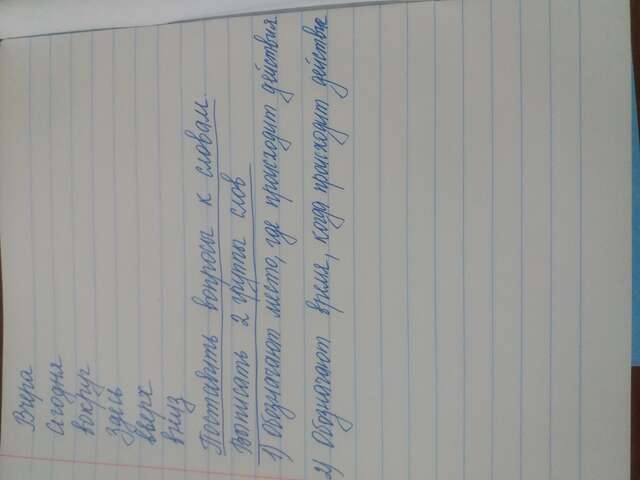 Вчера
Сегодня
вокруг
здесь
вверх
вниз
Поставить вопросы к словам.
Выписать 2 группы слов
1) Обозначают место, где происходит действия
2) Обозначают время, когда происходит действие